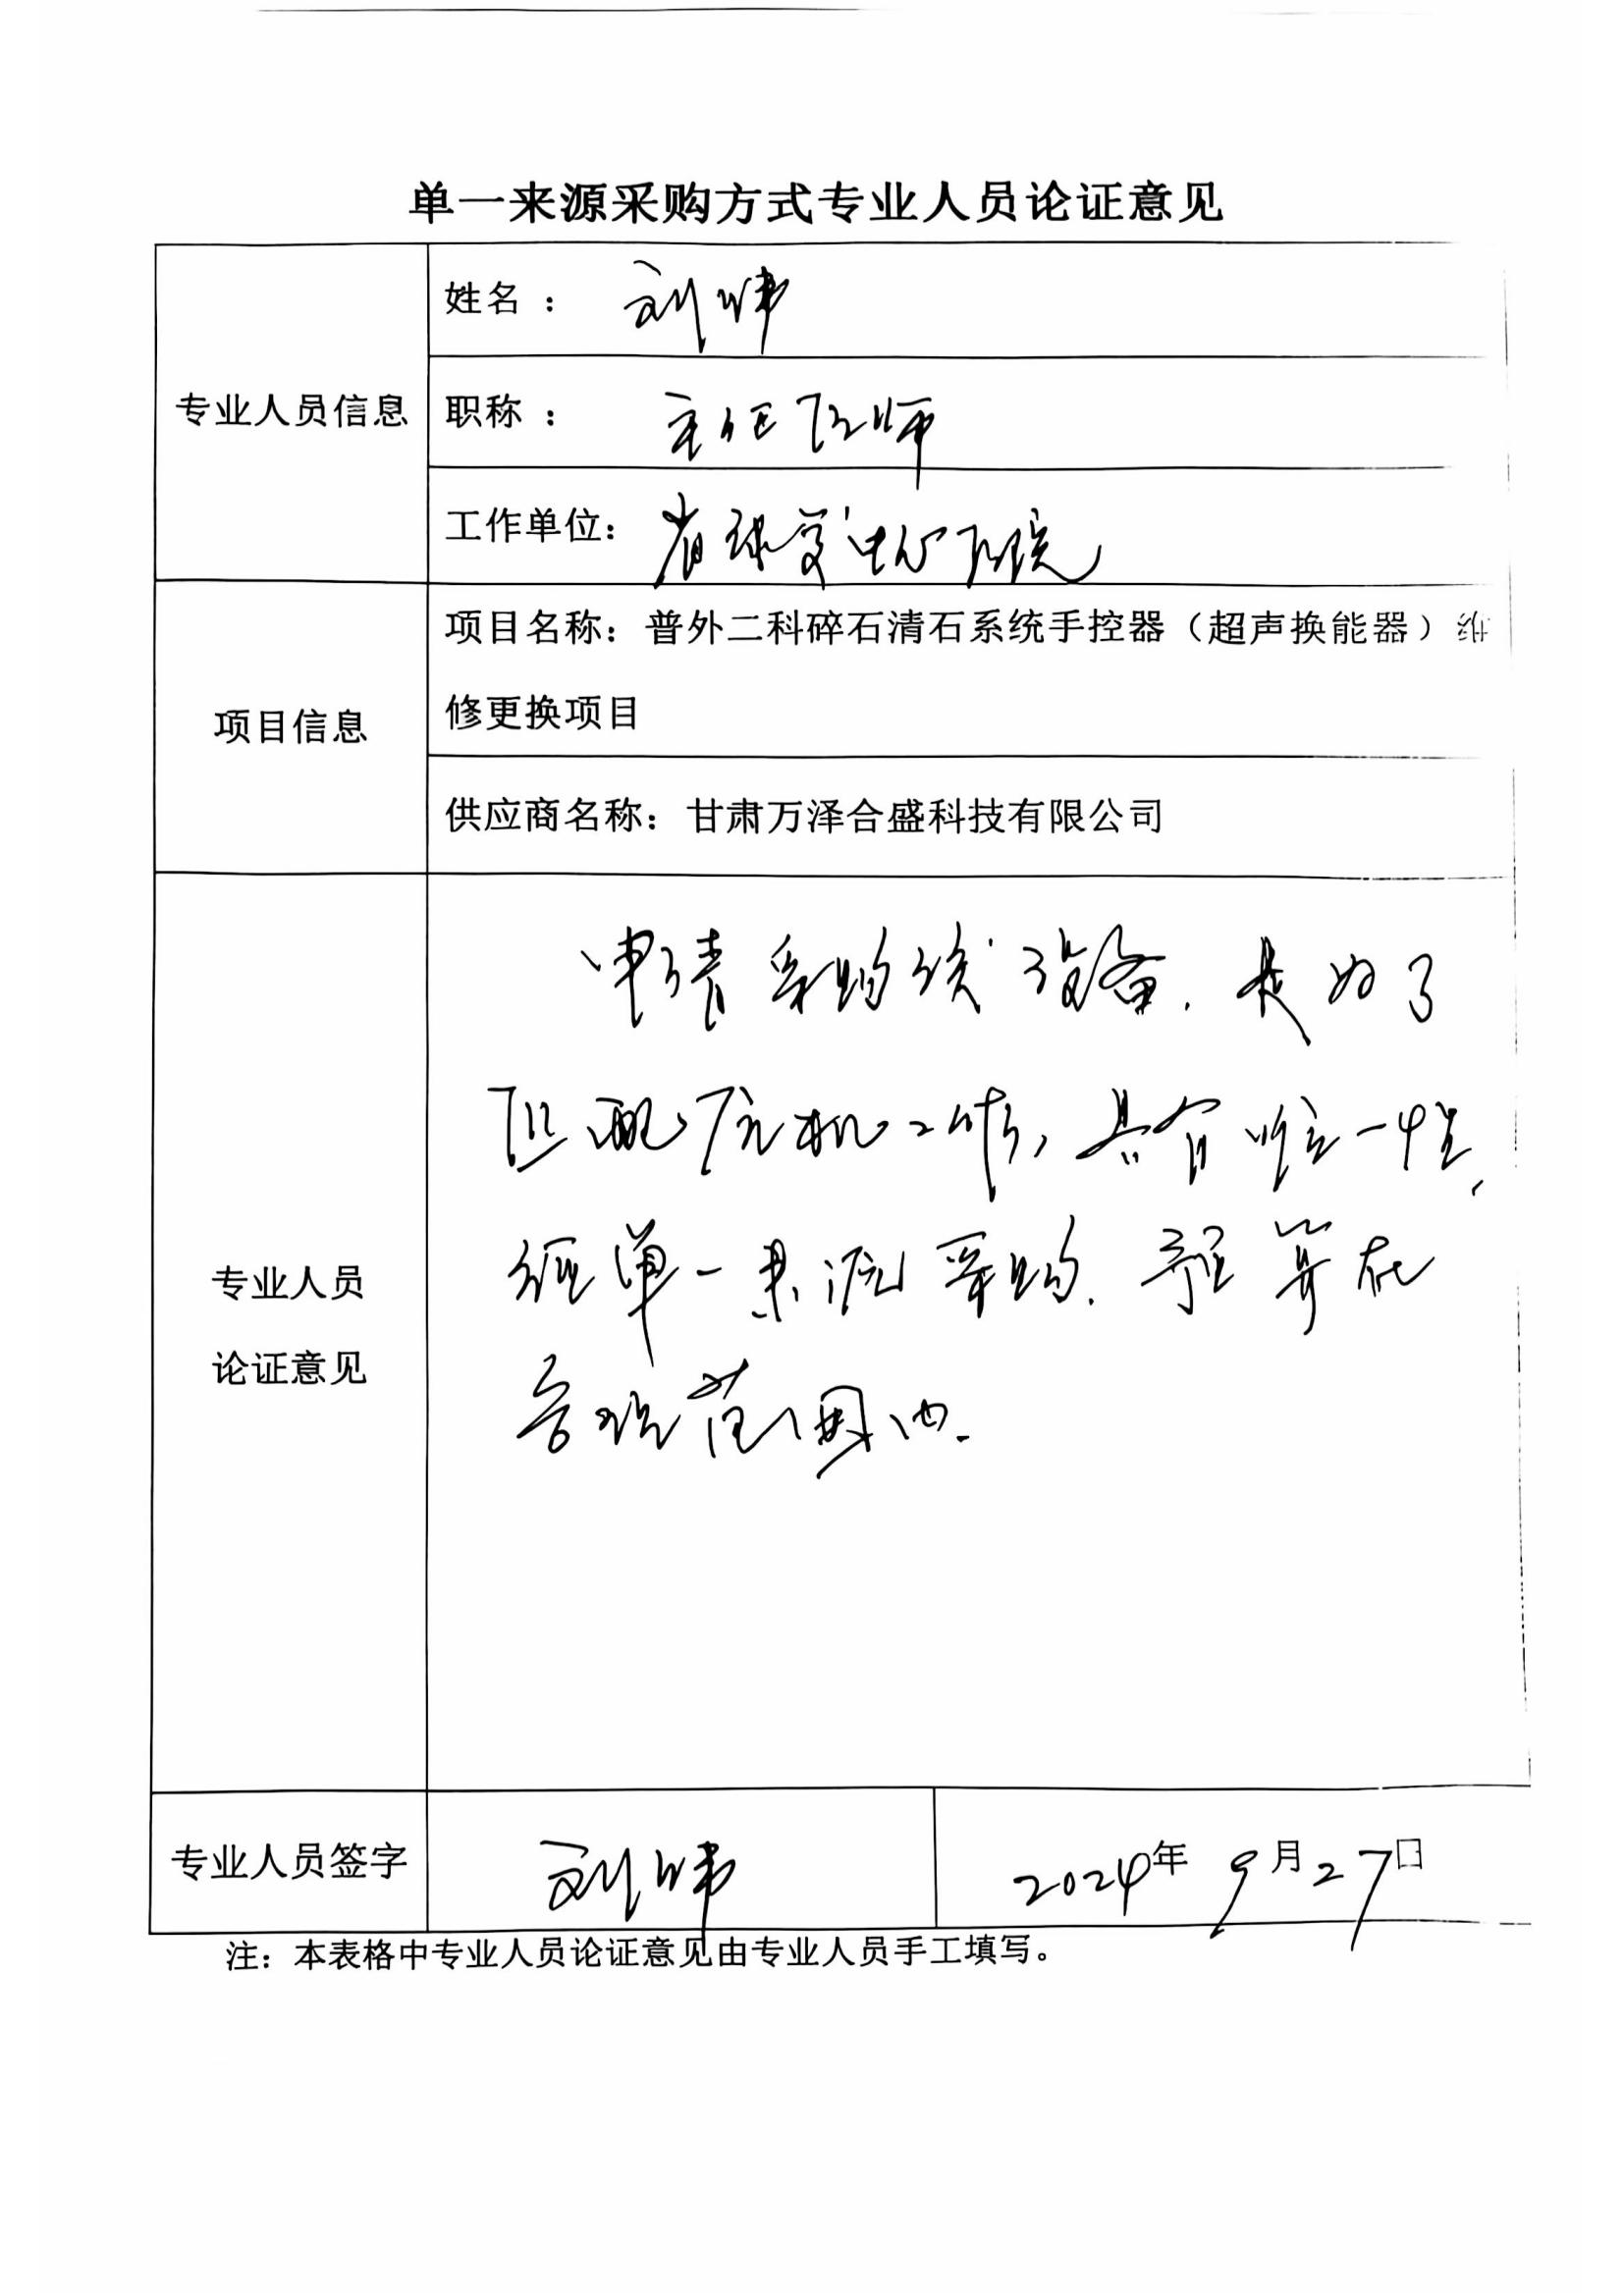 单一来源采购方式专业人员论证意见
专业人员信息
姓名： 刘炜
职称： 主任医师
工作单位： 省康复中心医院
项目信息
项目名称：普外二科碎石清石系统手控器（超声换能器）维
修更换项目
供应商名称：甘肃万泽合盛科技有限公司
专业人员
论证意见
申请采购该设备，是为了
匹配原机工作，具有唯一性，
经单一来源采购，预算在
合理范围内。
专业人员签字
刘炜
2024年9月27日
注：本表格中专业人员论证意见由专业人员手工填写。